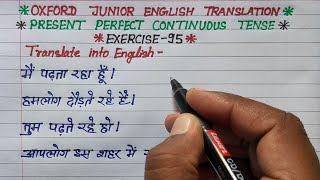 *OXFORD JUNIOR ENGLISH TRANSLATION
*PRESENT PERFECT CONTINUOUS TENSE
*EXERCISE-95*
Translate into English-
मैं पढ़ता रहा हूँ।
हमलोग दौड़ते रहे हैं।
तुम पढ़ते रहे हो।
आपलोग इस शहर में